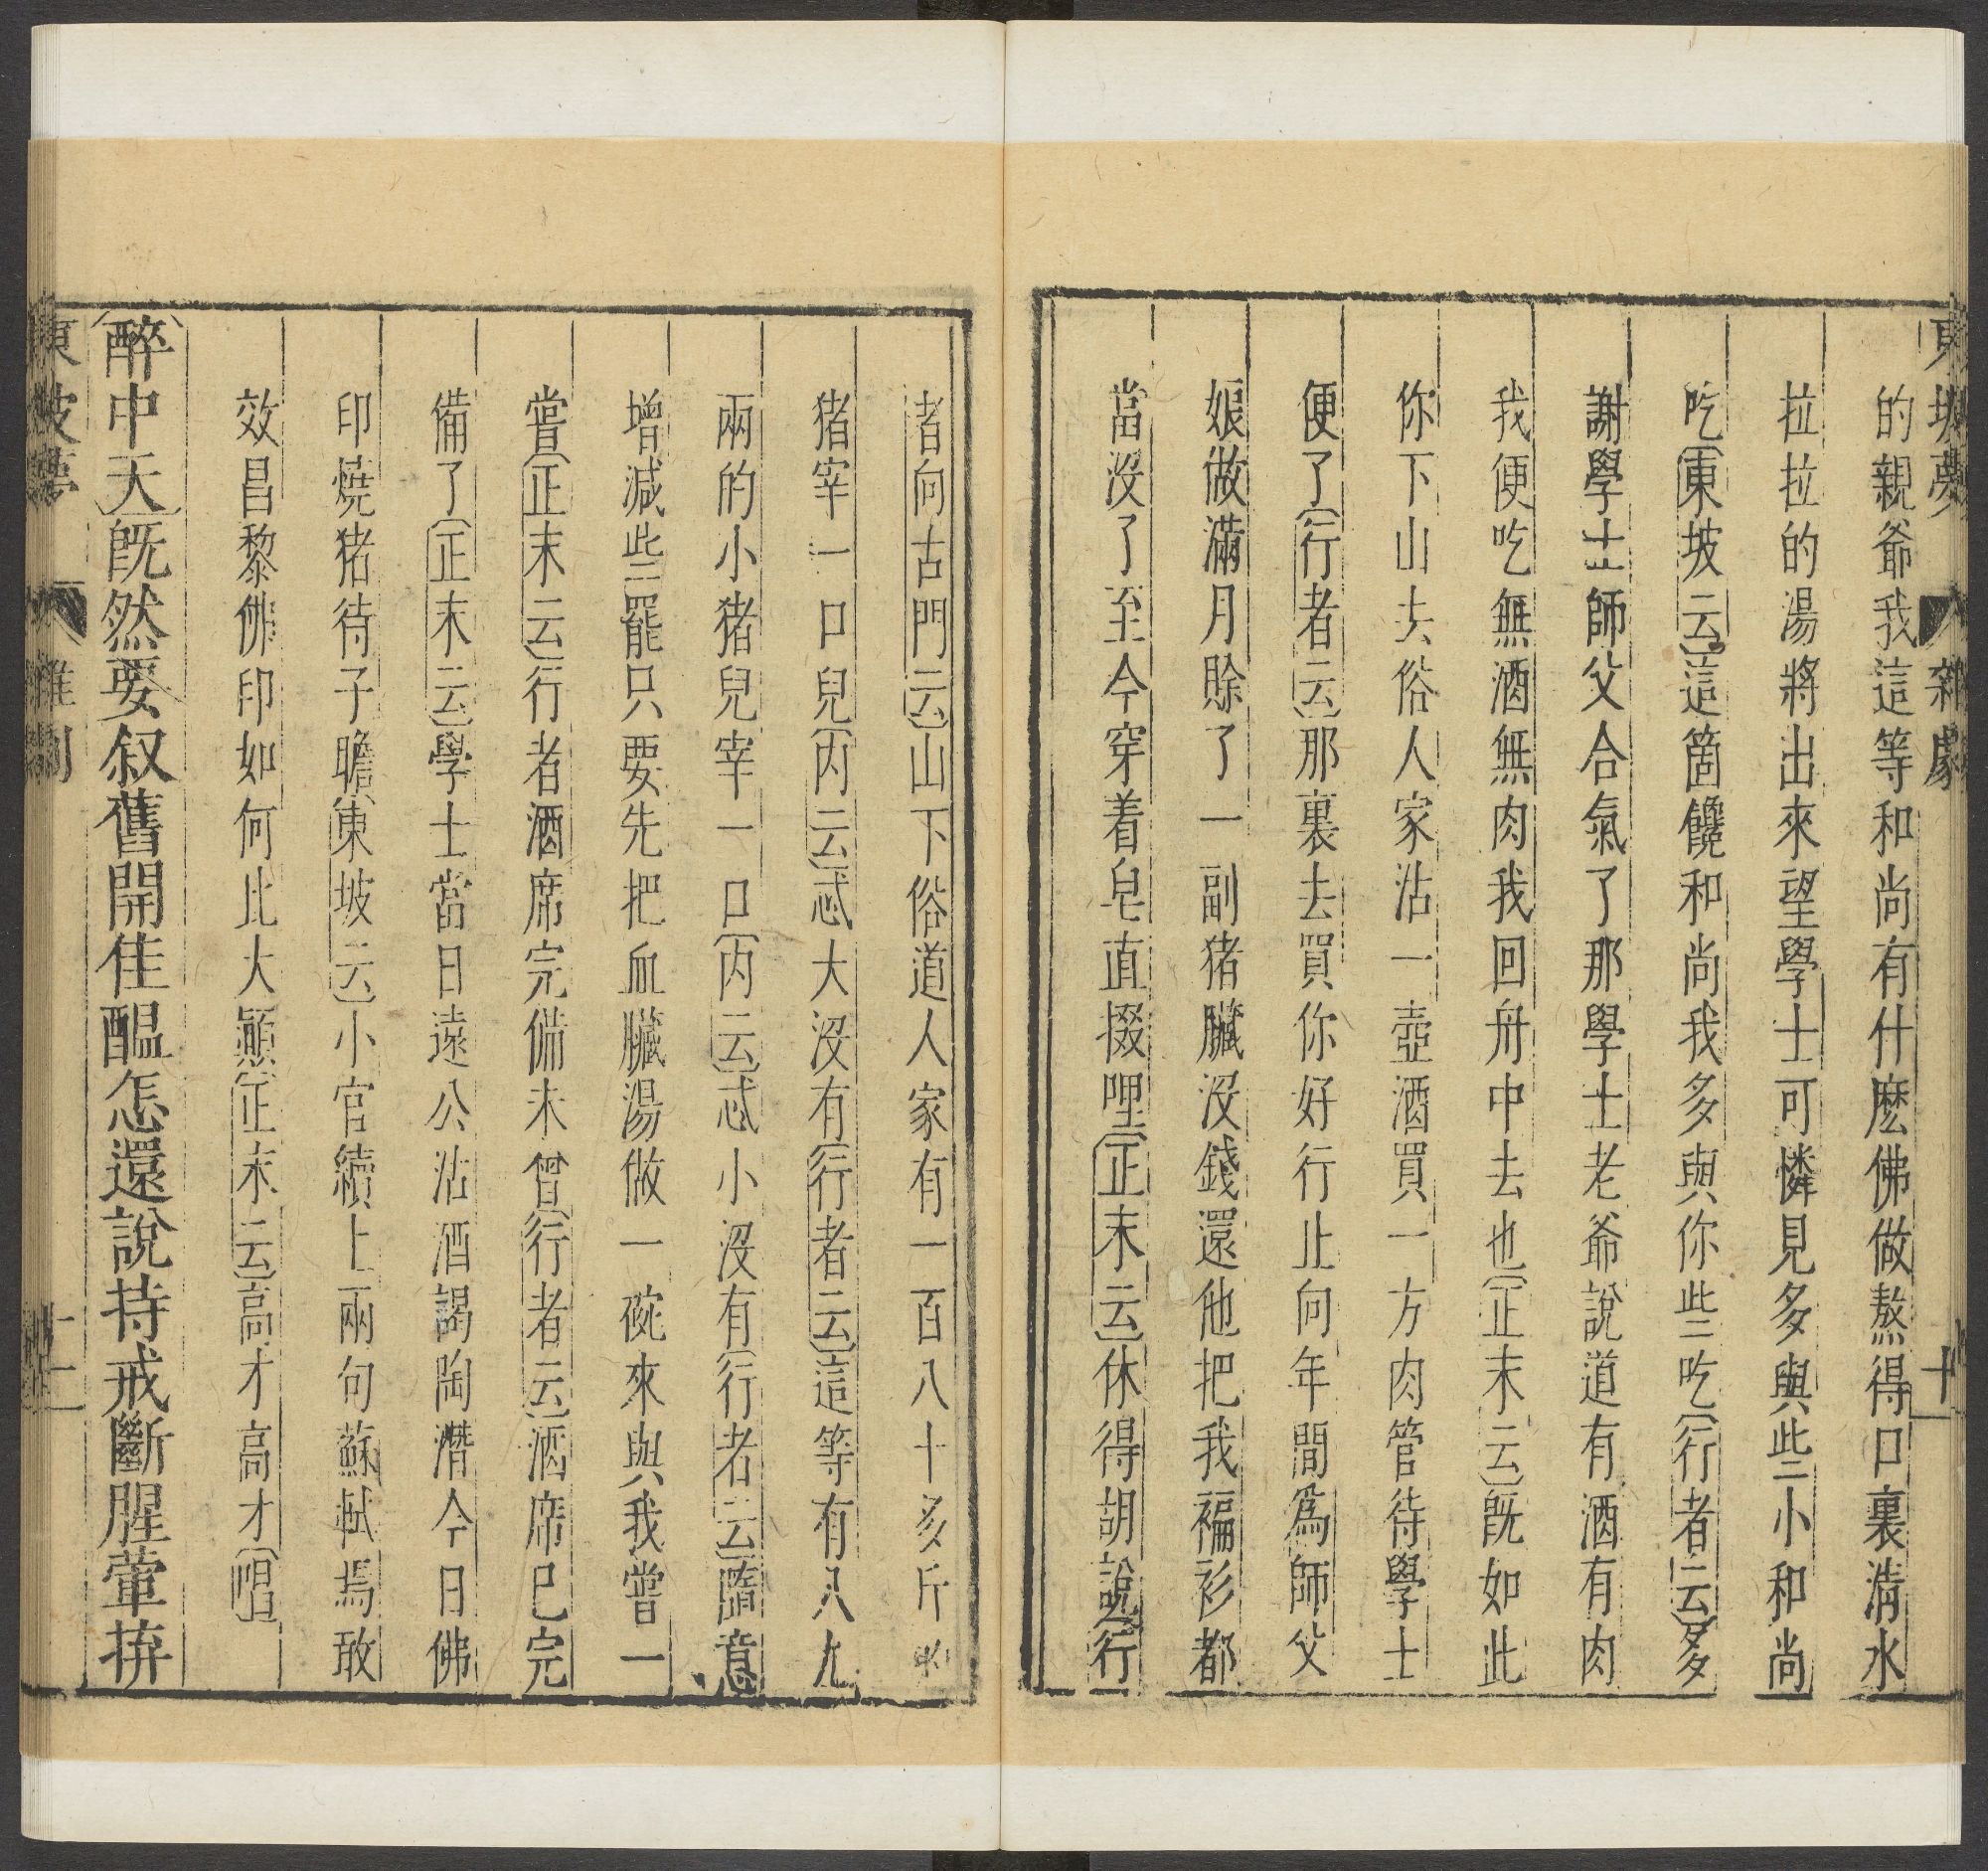 東坡夢 雜劇 十一
的親爺我這等和尚有什麽佛做熬得口裏清水
拉拉的湯將出來望學士可憐見多與些小和尚
吃〔東坡云〕這箇饞和尚我多與你些吃〔行者云〕多
謝學士師父合氣了那學士老爺說道有酒有肉
我便吃無酒無肉我回舟中去也〔正末云〕旣如此
你下山去俗人家沽一壺酒買一方肉管待學士
便了〔行者云〕那裏去買你好行止向年間爲師父
娘做滿月賒了一副猪臟沒錢還他把我褊衫都
當沒了至今穿着皂直掇哩〔正末云〕休得胡說〔行
者向古門云〕山下俗道人家有一百八十多斤的
猪宰一口兒〔內云〕忒大沒有〔行者云〕這等有八九
兩的小猪兒宰一口〔內云〕忒小沒有〔行者云〕隨意
增減些罷只要先把血臟湯做一碗來與我嘗一
嘗〔正末云〕行者酒席完備未曾〔行者云〕酒席已完
備了〔正末云〕學士當日遠公沽酒謁陶潛今日佛
印燒猪待子瞻〔東坡云〕小官續上兩句蘇軾焉敢
效昌黎佛印如何比大顚〔正末云〕高才高才〔唱〕
〔醉中天〕旣然要叙舊開佳醞怎還說持戒斷腥葷拚
東坡夢 雜劇 十二